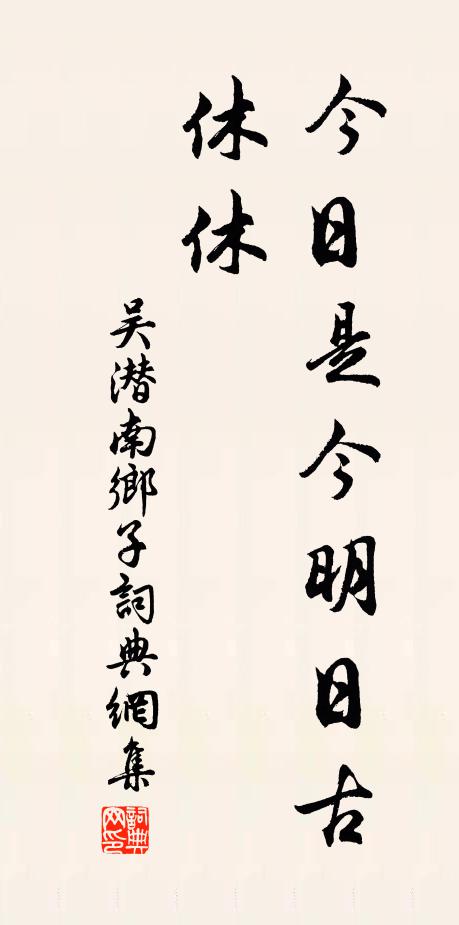 今日是今明日古
休休
吴潜南鄉子詞典網集
詞典網印